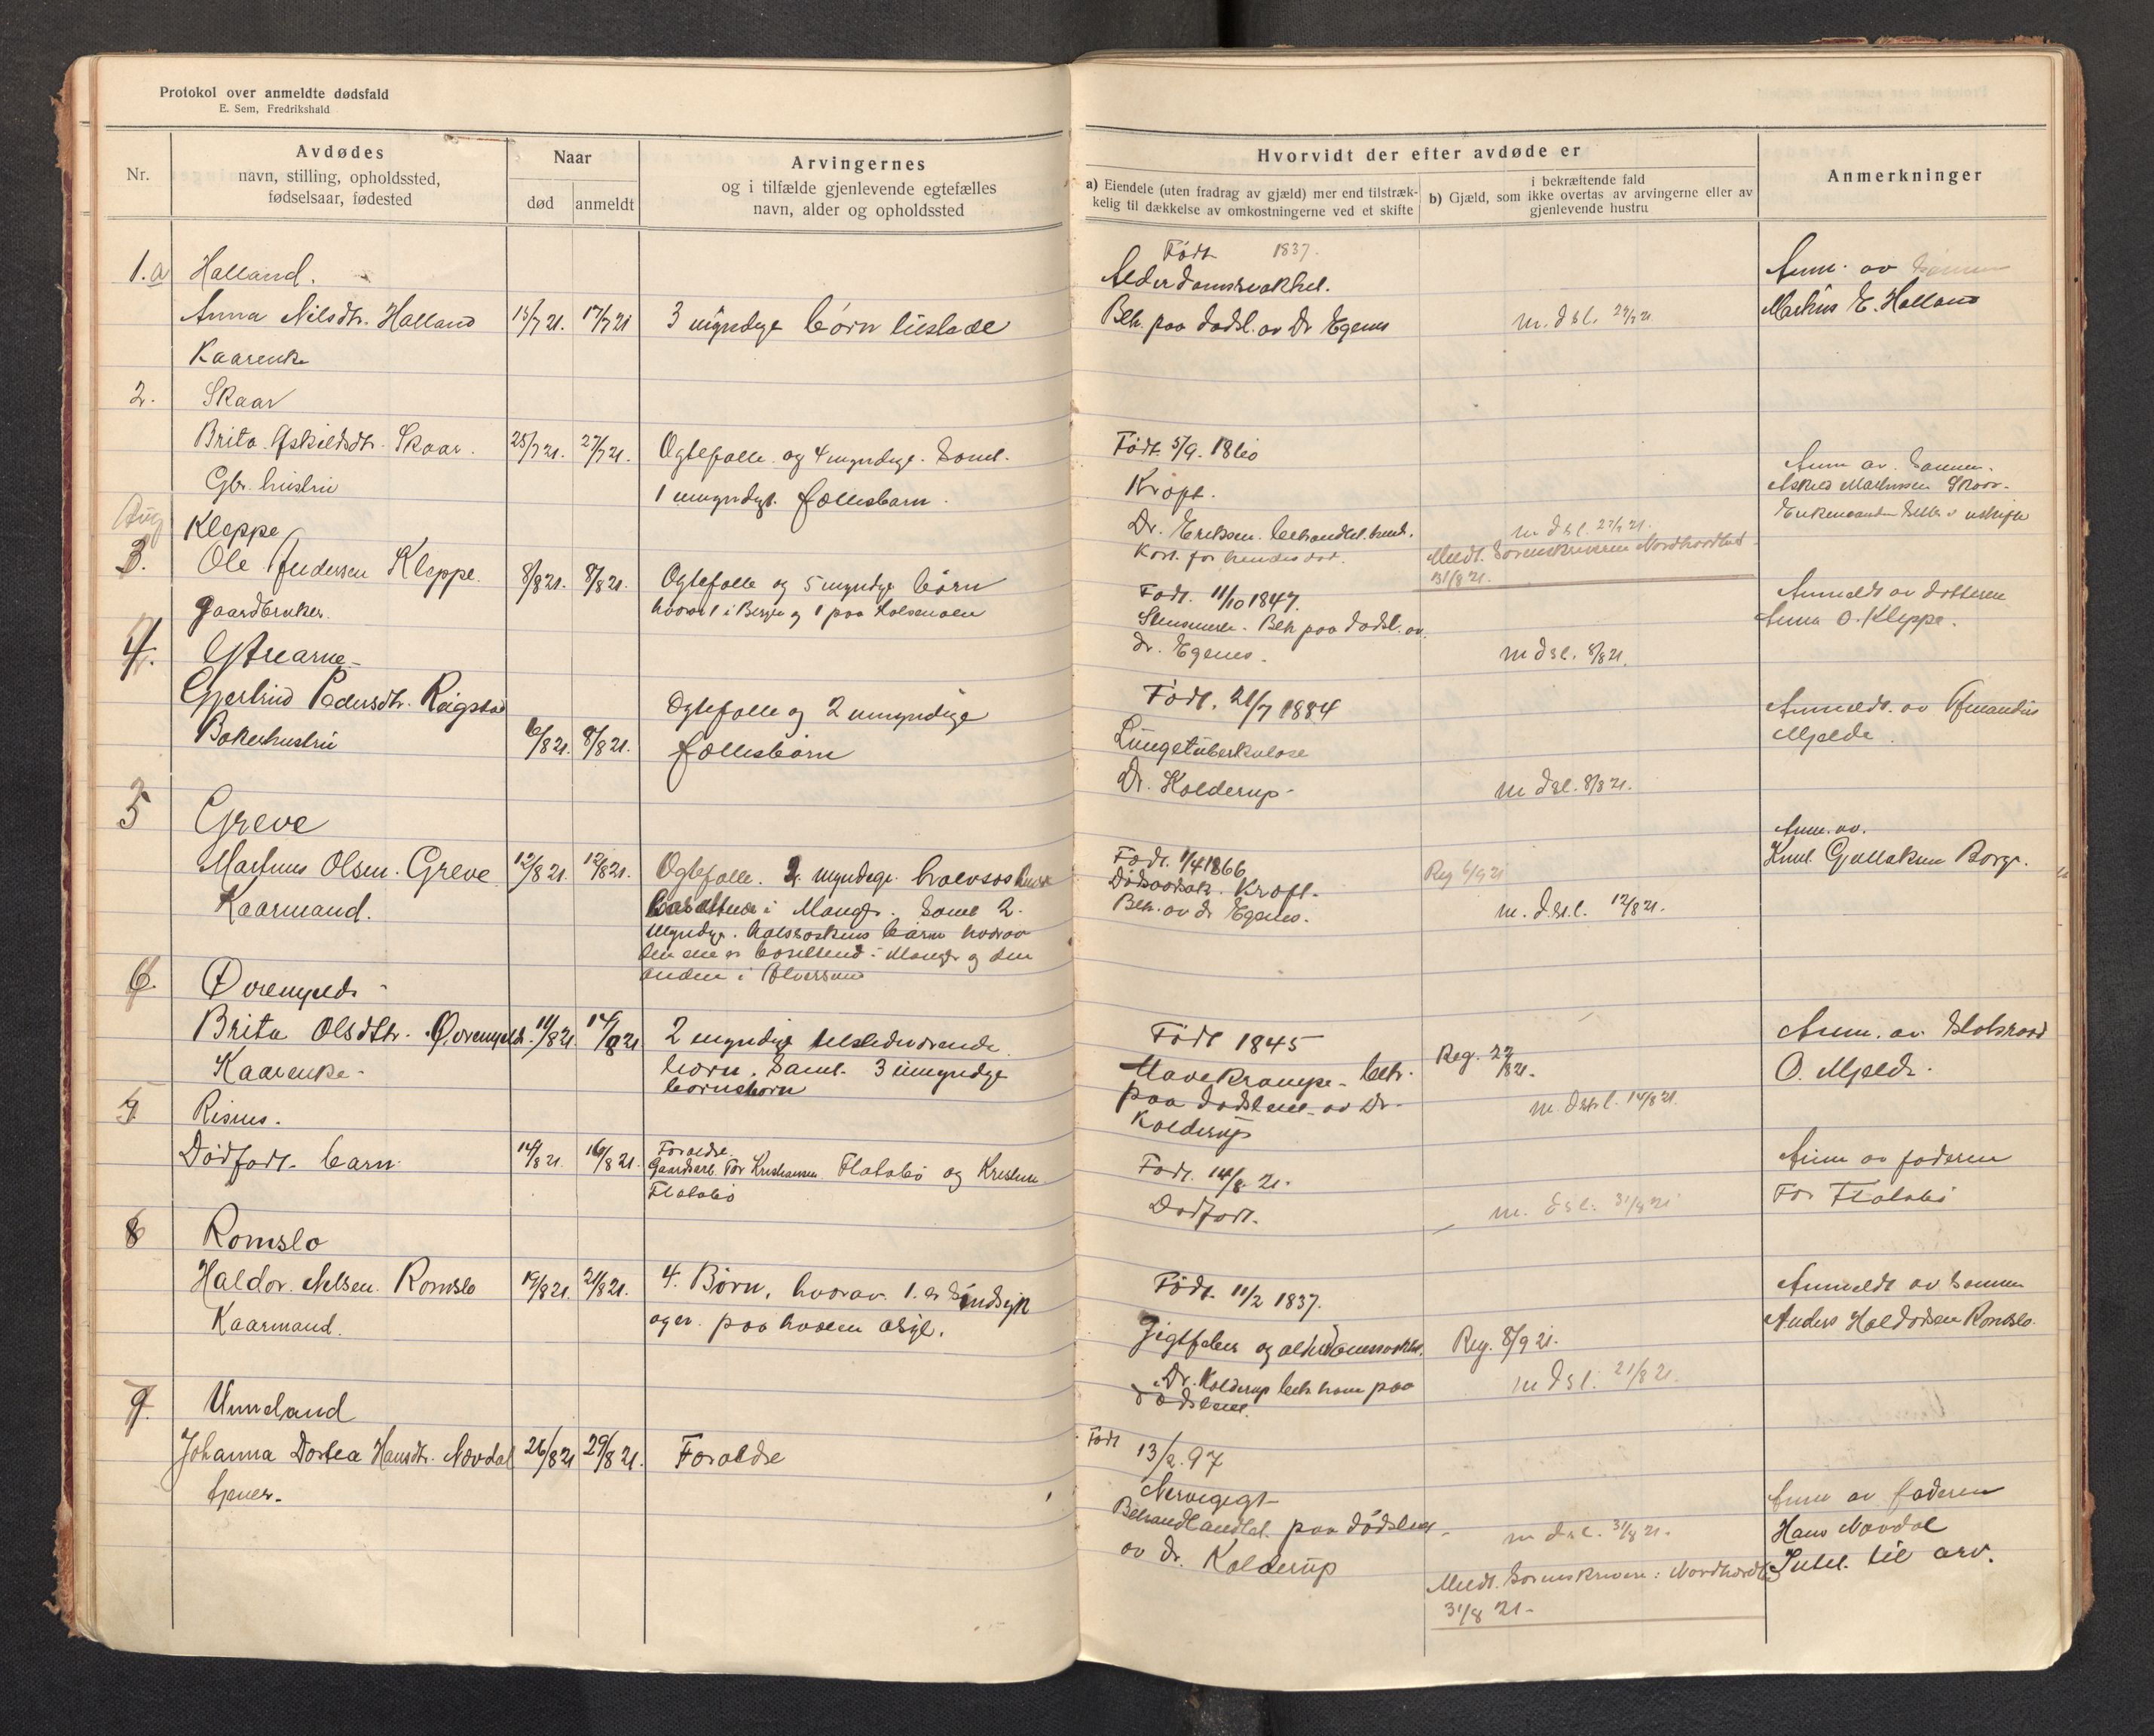 Protokol over anmeldte dødsfald
E. Sem, Fredrikshald
Nr.
Avdødes
navn, stilling, opholdssted,
fødselsaar, fødested
Naar
død
anmeldt
Arvingernes
og i tilfælde gjenlevende egtefælles
navn, alder og opholdssted
1.a
Halland.
Anna Nilsdtr. Halland
15/7 21.
17/7 21
3 myndige børn tilstade
Kaarenke
2.
Skaar
Brita Askildsdtr. Skaar.
25/7 21.
27/7 21.
Ogtefolle og 4 myndige. Saml.
Gbr. hustru
1 umyndigt. fællesbarn.
Aug
Kleppe
3.
Ole Andersen Kleppe.
8/8 21.
8/8 21.
Ogtefolle og 5 myndige børn
gaardbruker.
hvorav 1 i Bergen og 1 paa Holsenøen
4.
Gjertrud Pedersdtr. Røigstad
Ogtefolle og 2 umyndige
Bakerhustru
6/8 21.
8/8 21.
fællesbørn
5
Greve
Martinus Olsen. Greve
12/8 21.
12/8 21.
Ogtefolle. 2. myndige. halvsøs
Kaarmand.
i Manger. Samt 2.
myndige. halvsøskens barn hvorav
den ene er bosittend i Manger og den
anden i Alversund
6.
Øvremjelde
Brita Olsdtr. Øvremjeld.
11/8 21.
14/8 21
2 myndige tilstedeværende
Kaarenke.
børn. Saml. 3 umyndige
børnebørn
7.
Risnes.
Dødfødt barn.
14/8 21.
16/8 21.
Foreldre.
Gaardarb. Tor Kristiansen Flatabø og Kristine
Flatabø
8
Romslo
Haldor Nilsen. Romslo
19/8 21.
21/8 21.
4. Børn, hvorav. 1. er Sindsyk
Kaarmand.
og er. paa hvoen asyl.
9.
Unneland
Johanna Dortea Hansdtr. Navdal
26/8 21
29/8 21.
Foreldre
tjener.
Hvorvidt der efter avdøde er
a) Eiendele (uten fradrag av gjæld) mer end tilstræk-
kelig til dækkelse av omkostningerne ved et skifte
i bekræftende fald
b) Gjæld, som ikke overtas av arvingerne eller av
gjenlevende hustru
Anmerkninger
Født 1837.
Alderdomssvakhet.
Beh. paa dødsl. av Dr Egenes
m. dsl. 22/7 21.
Anm. av Sønnen
Markus E. Halland
Født. 5/9. 1860
Kræft.
Dr. Eriksen. behandlet. hende.
Kort. før hendes død.
m dsl. 27/7 21.
Meldt. Sorenskriveren Nordhordland
31/8 21.
Anm av. Sønnen.
Askild Mathissen Skaar.
Enkemanden sitter i uskifte
Født. 11/10 1847.
Beh paa dødsl. av.
dr. Egenes.
m dsl. 8/8 21.
Anmeldt av datteren
Anna O. Kleppe.
Født. 21/7 1884
Lungetuberkulose
Dr. Kolderup.
m dsl. 8/8 21.
Anmeldt. av Amandus
Mjelde.
Født. 1/4 1866
Dødsaarsak. Kræft.
Beh. av dr Egenes.
Reg 6/9 21
m. dsl. 12/8 21.
Anm. av.
Knut Gullaksen Borge.
Født 1845
Mavekrampe. beh.
paa dødsleiet av Dr.
Kolderup
Reg. 22/8 21.
m dsl. 14/8 21.
Anm. av
O. Mjelde.
Født. 14/8 21.
Dødfødt.
m. dsl. 31/8 21
Anm av faderen
Tor Flatabø
Født. 11/2 1837.
Jigtfeber og alderdomssvakhet.
Dr. Kolderup beh. ham paa
dødsleiet.
Reg. 8/9 21.
m dsl. 21/8 21.
Anmeldt av Sønnen
Anders Haldorsen Romslo.
Født 13/2. 97
Nervegigt
Behandlandlet. paa dødsleiet.
av dr. Kolderup
m dsl. 31/8 21.
Meldt. Sorenskriveren i Nordhordl.
31/8 21.
Anm av faderen
Hans Navdal
Intet. til arv.